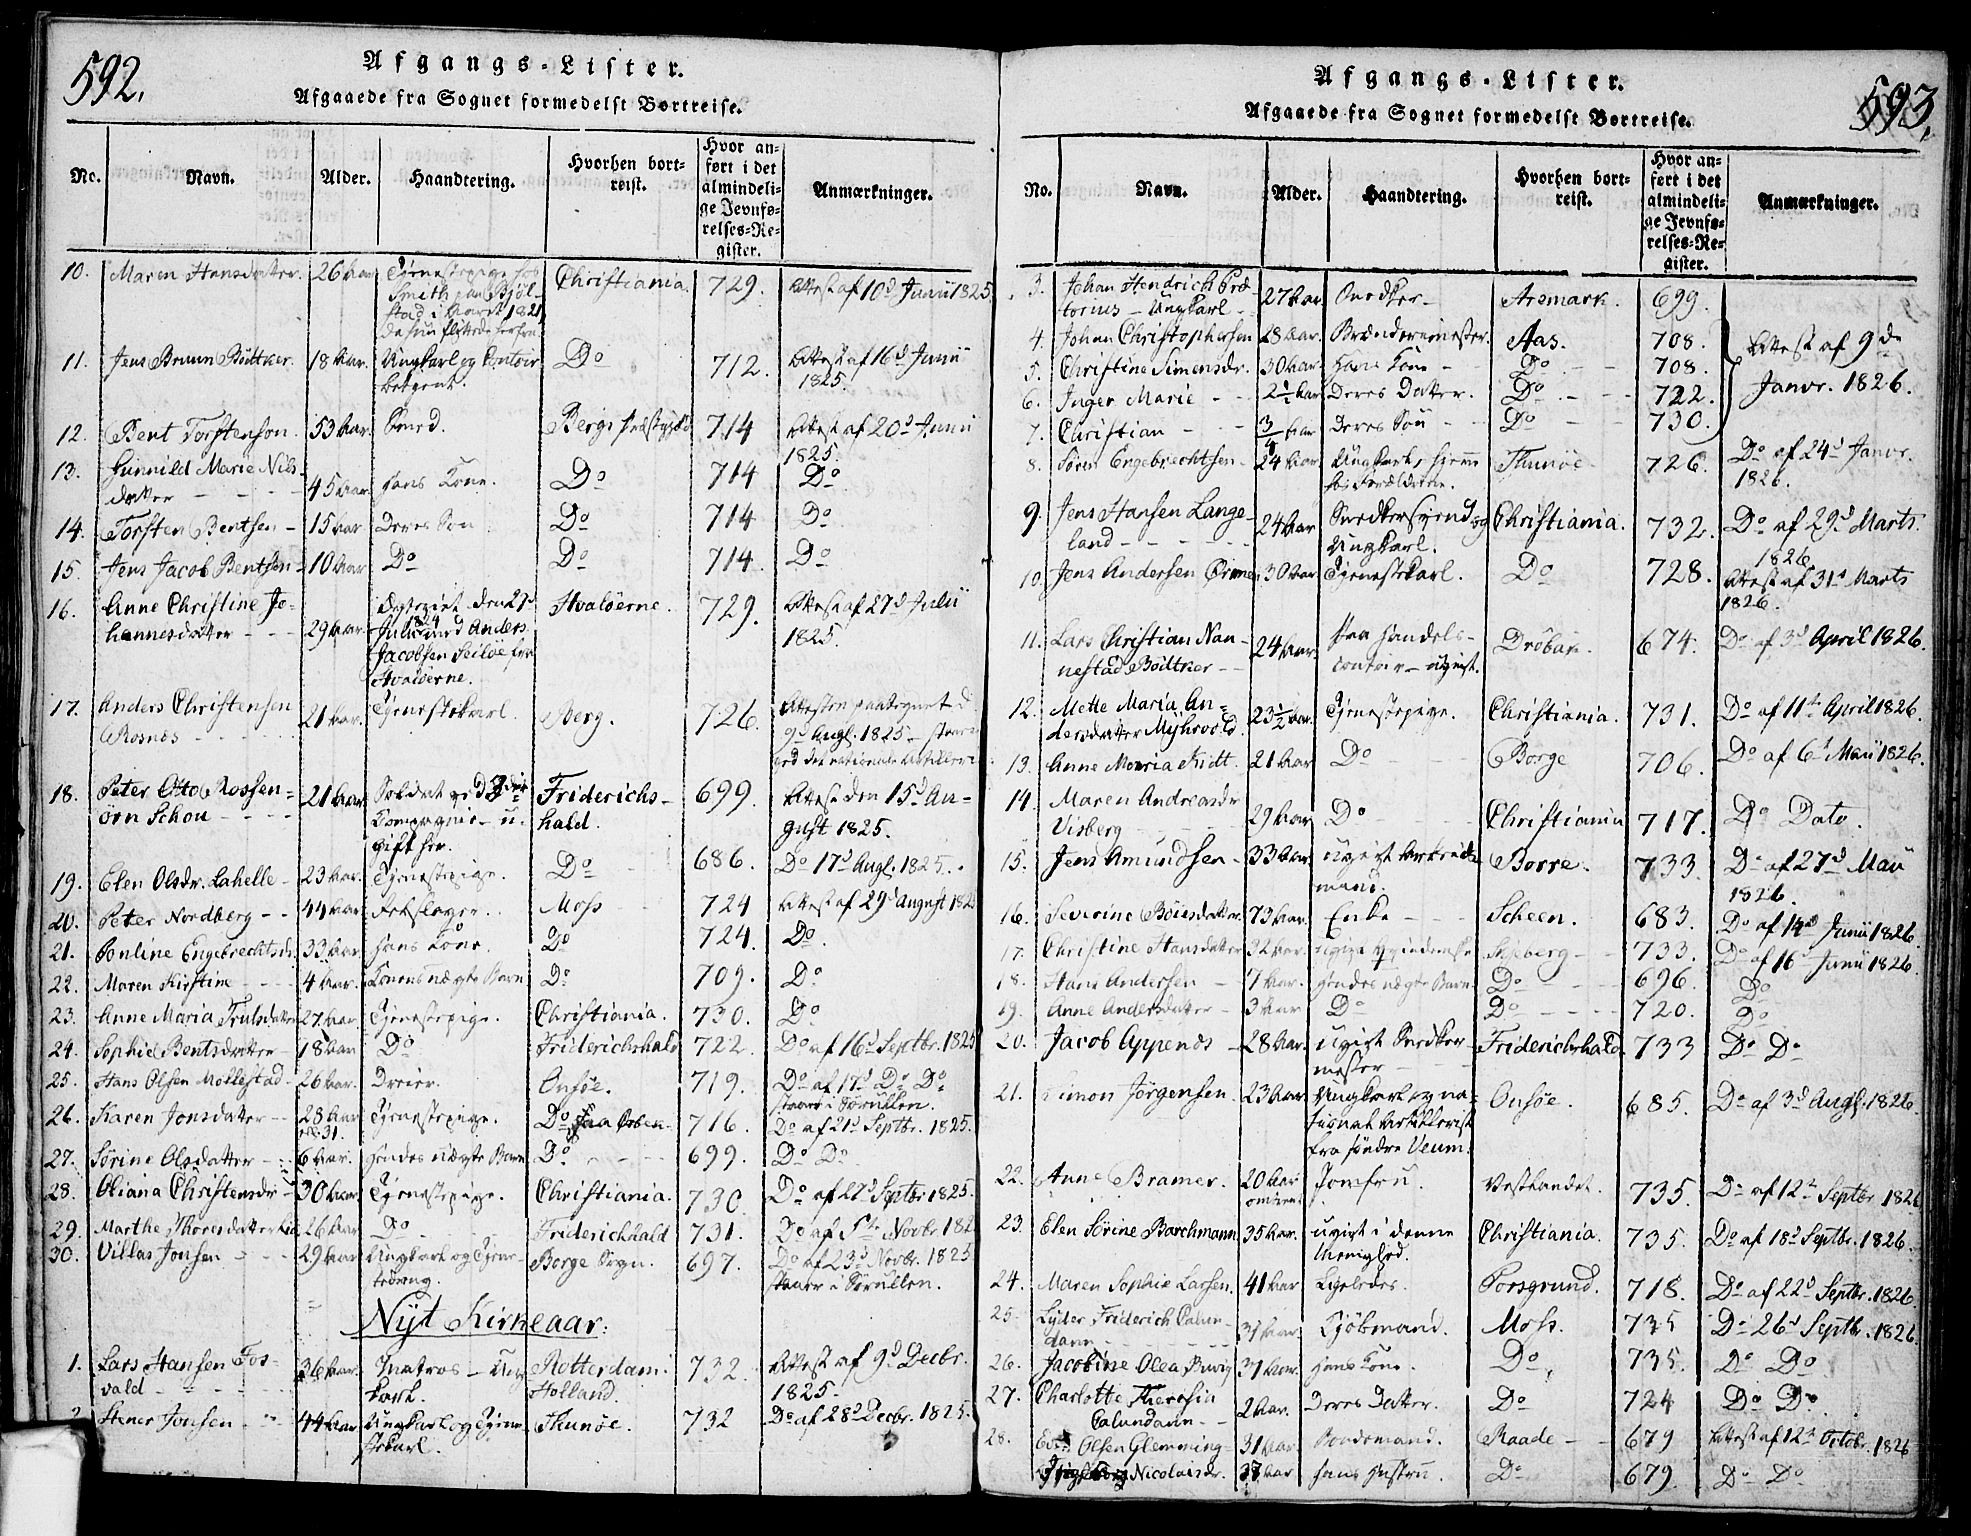 592.
Afgangs-Lister.
Afgaaede fra Sognet formedelst Bortreise.
No. Navn. Alder. Haandtering. Hvorhen bortreist. Hvor anført i det almindelige Jevnførelses-Register. Anmærkninger.
10. Maren Hansdatter. 26 Aar Tjenestepige hos Smith paa Christiania. 729. Attest af 10d Junii 1825.
11. Jens Bruun Büttker. 18 Aar. Ungkarl og Contoir betjent. Do 712. Attest af 16d Junii 1825.
12. Bent Torstenson. 53 Aar. Smed. Bergs Præstegjeld 714 Attest af 20d Junii 1825.
13. Gunnild Marie Nilsdatter 45 Aar hans Kone. Do 714 Do
14. Torsten Bentsen 15 Aar Deres Søn Do 714 Do
15. Jens Jacob Bentsen 10 Aar Do Do 714 Do
16. Anne Christine Johannesdatter 29 Aar den 27d Julii 1824 med Anders Jacobsen Seilöe fra Hvalöerne. Hvalöerne. 729. Attest af 27d Julii 1825.
17. Anders Christensen Rosnes 21 Aar. Tjenestekarl. Berg. 726. Attesten paategnet d 9d Augl. 1825 ved det nationale Artilleri
18. Peter Otto Rossenørn Schou 21 Aar Soldat ved Compagnie ugift her. Friderichshald. 699 Attest den 15d August 1825.
19. Elen Olsdr. Lahelle 23 Aar. Tjenestepige. Do 686. Do 17d Augl. 1825.
20. Peter Nordberg 44 Aar. Moss 724 Attest af 29d August 182
21. Pouline Engebrechtsdr. 33 Aar. hans Kone. Do 724. Do.
22. Maren Kirstine 4 Aar. Konens uægte Barn Do 709. Do
23. Anne Maria Trulsdatter 27 Aar Tjenestepige. Christiania. 730. Do
24. Sophie Bentsdatter 18 Aar Do Friderichshald 722. Do af 16d Septbr. 1825
25. Hans Olsen Mollestad 26 Aar. Dreier. Onsöe. 719. Do af 17d Do Do staaer i Sørullen.
26. Karen Jonsdatter 28 Aar 31. Tjenestepige. Do 716. Do af 21d Septbr. 1825.
27. Sörine Olsdatter 6 Aar. hendes uægte Barn Do 699. Do Do
28. Oliana Christensdr 30 Aar Tjenestepige. Christiania. 730. Do af 27d Septbr 1825.
29. Marthe Thoresdatter 26 Aar Do Friderichhald 731. Do af 5te Novbr 182
30. Villas Jonsen 29 Aar Ungkarl og Borge Sogn. 697. Do af 23d Novbr. 1825 staaer i Sørullen.
Nyt Kirkeaar:
1. Lars Hansen Fosvald 36 Aar. Matros Ungkarl. Rotterdam i Holland. 732. Attest af 9d Decbr. 1825.
2. Stener Jonsen 44 Aar Ungkarl og Tjenestekarl. Thunöe. 732 Do af 28d Decbr. 1825.
593.
Afgangs-Lister.
Afgaaede fra Sognet formedelst Bortreise.
No. Navn. Alder. Haandtering. Hvorhen bortreist. Hvor anført i det almindelige Jevnførelses-Register. Anmærkninger.
3. Johan Hendrich Prætorius Ungkarl 27 Aar Snedker Aremark. 699.
4. Johan Christophersen 28 Aar. Brænderiemester. Aas. 708. Attest af 9de
5. Christine Simensdr. 30 Aar. hans Kone Do 708.
6. Inger Marie 2½ Aar Deres Datter. Do 722. Janvr. 1826.
7. Christian 3/4 Aar Deres Søn Do 730.
8. Sören Engebrechtsen 24 Aar Ungkarl, hjemme hos Forældrene. Thunöe 726. Do af 24d Janvr. 1826.
9. Jens Hansen Langeland 24 Aar Snedkersvend og Ungkarl. Christiania. 732. Do af 29d Marts 1826.
10. Jens Andersen 30 Aar Tjenestekarl. Do 728. Attest af 31d Marts 1826.
11. Lars Christian Nannestad Bödtker 24 Aar. Paa Handels contoir ugivt. Dröbak. 674. Do af 3d April 1826.
12. Mette Maria Andersdatter 23½ Aar. Tjenestepige. Christiania. 731. Do af 11te April 1826.
13. Anne Maria Kidt 21 Aar Do Borge 706. Do af 6d Maii 1826.
14. Maren Andreasdr Visberg 29 Aar Do Christiania 717. Do Dato.
15. Jens Amundsen 33 Aar. ugivt Arbeidsmand. Borre. 733. Do af 27d Maii 1826.
16. Severine Böiesdatter 73 Aar. Enke Scheen. 683. Do af 14d Junii 1826.
17. Christine Hansdatter 32 Aar. ugivt Qvindemske Skjeberg 733. Do af 16d Junii 1826.
18. Hans Andersen 7 Aar. hendes uægte Barn Do 696. Do
19. Anne Andersdatter 3 Aar Do Do 720. Do
20. Jacob Appenes 28 Aar. ugivt Snedkermester Friderichshald 733 Do Do
21. Simon Jörgensen 23 Aar Ungkarl og national Artillerist fra söndre Veum. Onsöe. 685. Do af 3d Augl. 1826.
22. Anne Bramer. 20 Aar omtrent Jomfru. Vestlandet. 735. Do af 12te Septbr 1826
23. Elen Sörine Borchmann 35 Aar. ugivt i denne Menighed. Christiania. 735. Do af 18d Septbr. 1826.
24. Maren Sophie Larsen. 41 Aar Ligeledes. Porsgrund. 718. Do af 22d Septbr. 1826.
25. Lyder Friderich Calundann 37 Aar Kjöbmand. Moss. 735 Do 26d Septbr. 1826.
26. Jacobine Olea 31 Aar. hans Kone. Do 735. Do Do
27. Charlotte Theresia Calundann 2 Aar. Deres Datter. Do 724 Do Do
28. Olsen Glemming 31 Aar. Bondemand. Raade 679 Attest af 12te Octobr. 1826
Nicolaisdr. 37 Aar hans Hustru. Do 679. Do Do